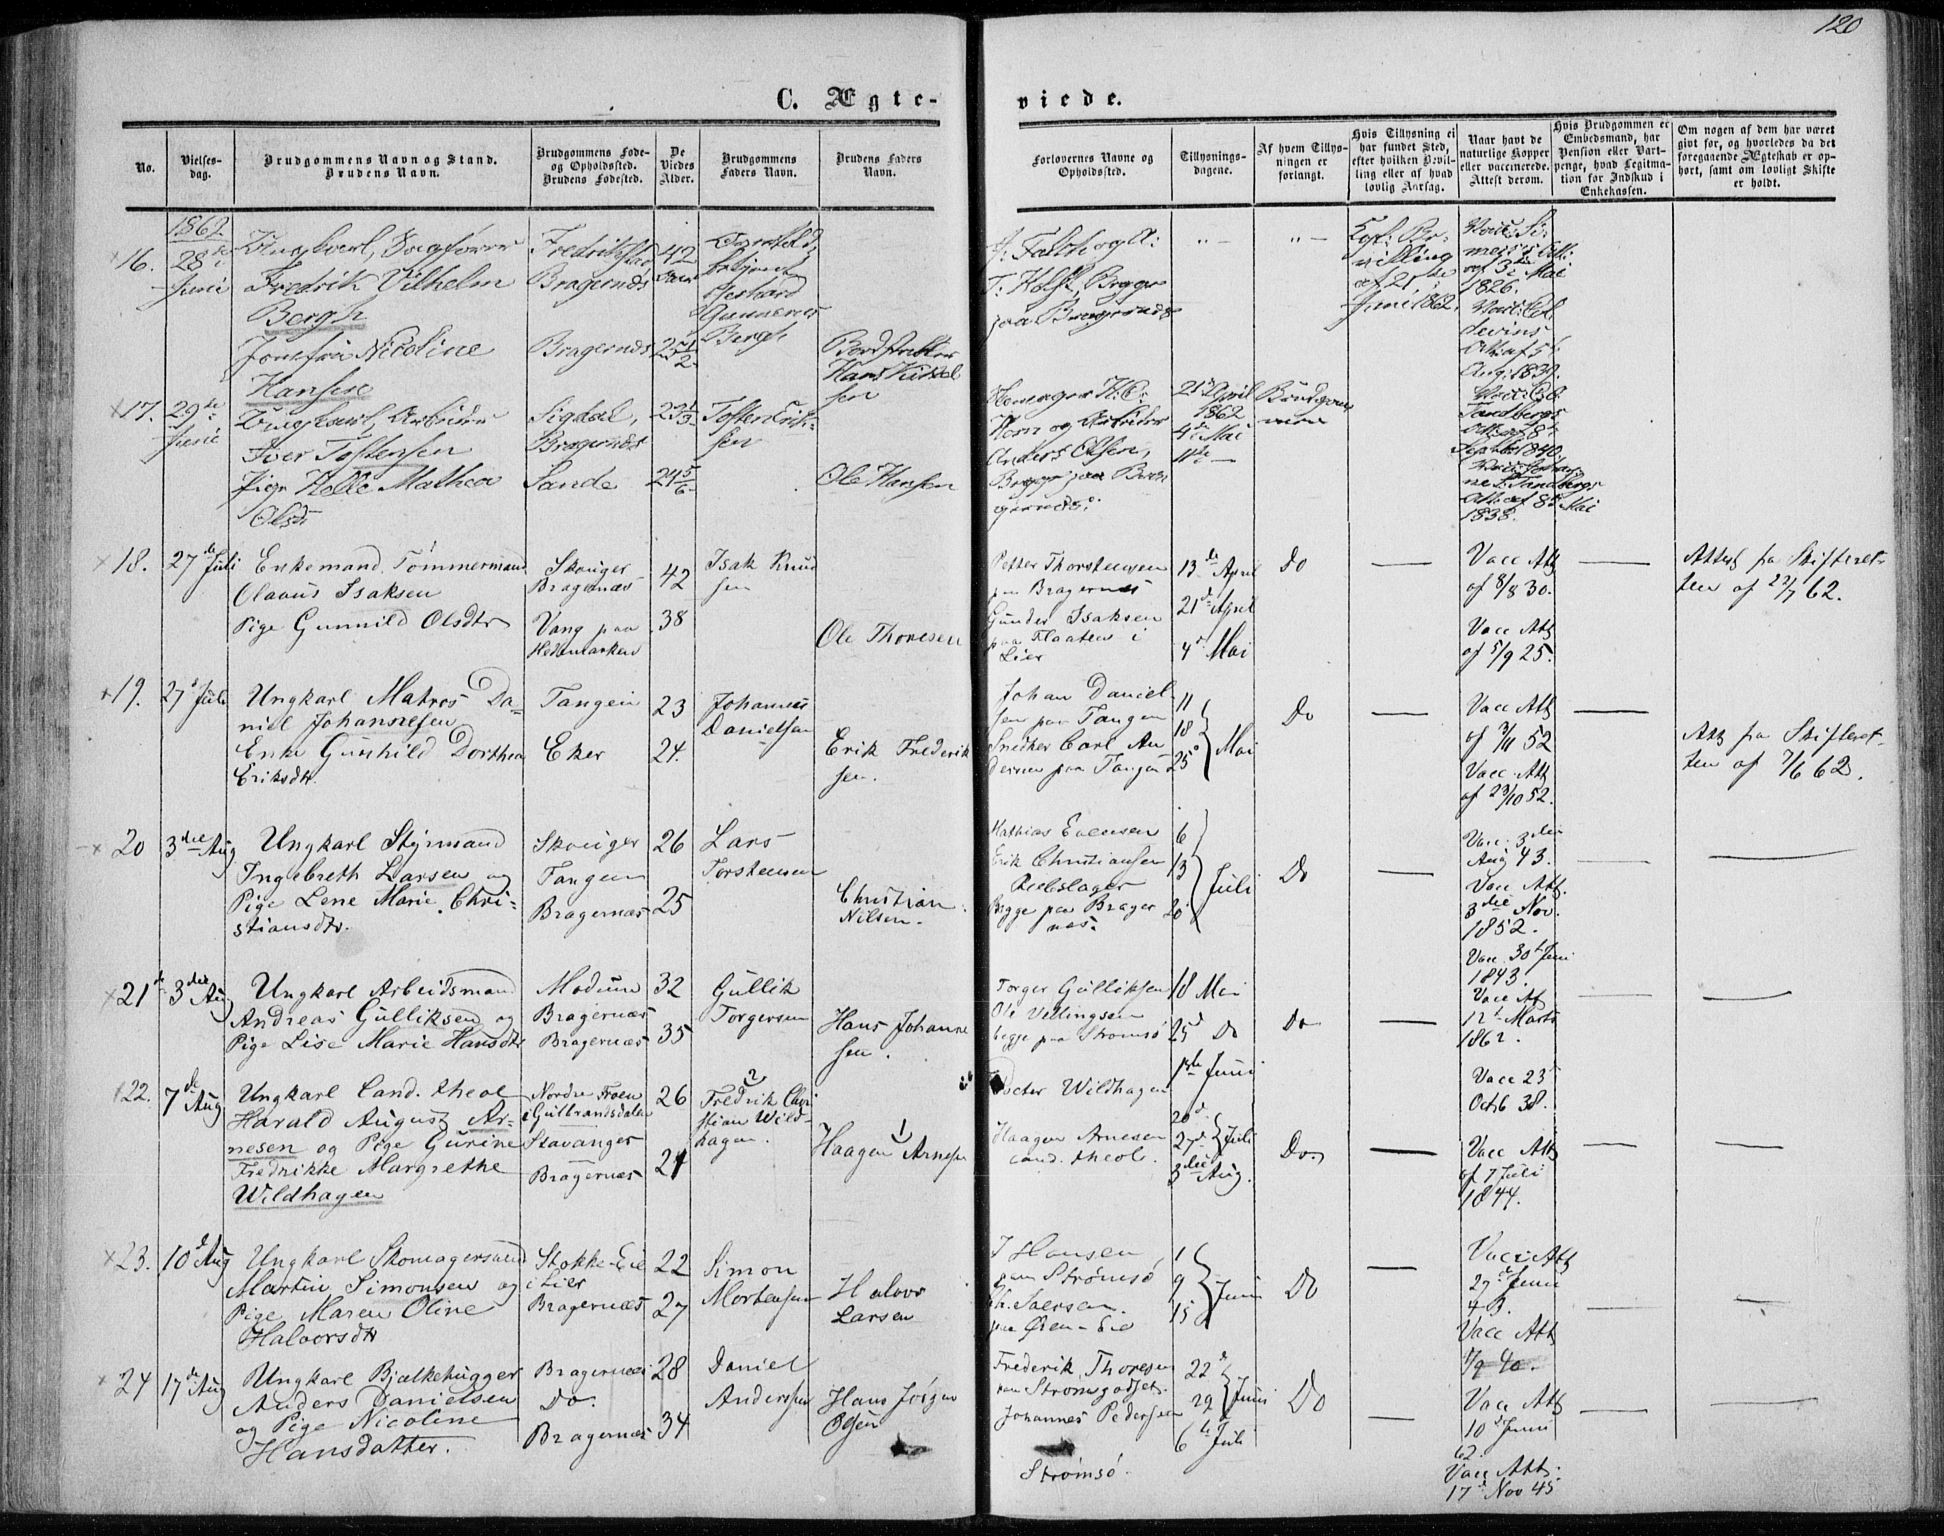 120
C. Ægte-
viede.
No.
Vielses-
dag.
Brudgommens Navn og Stand.
Brudens Navn.
Brudgommens Føde-
og Opholdssted.
Brudens Fødested.
De
Viedes
Alder.
Brudgommens
Faders Navn.
Brudens Faders
Navn.
Forlovernes Navne og
Opholdssted.
Tillysnings-
dagene.
Af hvem Tillys-
ningen er
forlangt.
Hvis Tillysning ei
har fundet Sted,
efter hvilken Bevil-
ling eller af hvad
lovlig Aarsag.
Naar havt de
naturlige Kopper
eller vaccinerede.
Attest derom.
Hvis Brudgommen er
Embedsmand, har
Pension eller Vart-
penge, hvad Legitima-
tion for Indskud i
Enkekassen.
Om nogen af dem har været
givt før, og hvorledes da det
foregaaende Ægteskab er op-
hørt, samt om lovligt Skifte
er holdt.
1862
16.
28de
Juni
Ungkarl, Sagfører
Fredrik Vilhelm
Bergh
Jomfru Nicoline
Hansen
Fredrikstad
Bragernæs
Bragernæs
42
25 1/2
Gerhard
Gunnerus
Bergh
Hans Kittel
sen
T. Holst, Begge
paa Bragernæs
" —
" —
Kgl: Be-
villing
af 21de
Juni 1862.
af 3die Mai
1826.
Att: af 5te
Aug: 1839.
17.
29de
Juni
Ungkarl, Arbeider
Iver Tostensen
Pige Helle Mathea
Olsdr
Sigdal,
Bragernæs
Sande
23 1/3
24 5/6
Tosten Erik-
sen
Ole Hansen
Horn og Arbeider
Anders Olsen,
Begge paa Bra-
gernæs.
21de April
1862
4de Mai
11te —
Brudgom-
men
Tandbergs
Att: af 8de
Septbr 1840.
Tandbergs
Att: af 8de Mai
1838.
18.
27de Juli
Enkemand Tømmermand
Olavus Isaksen
Pige Gunnild Olsdtr
Skouger
Bragernæs
Vang paa
Hedemarken
42
38
Isak Knud
sen
Ole Thoresen
Petter Thorstensen
paa Bragernæs
Gunder Isaksen
paa Flaaten i
Lier
13de April
21de April
4de Mai
Do
—
Vacc Att
af 8/8 30.
Vacc Att
af 5/9 25.
—
Attest fra Skifteret-
ten af 22/7 62.
19.
27de Juli
Ungkarl Matros Da-
niel Johannesen
Enke Gunhild Dorthea
Eriksdtr.
Tangen
Eker
23
24.
Johannes
Danielsen
Erik Frederik
sen.
Johan Daniel-
sen paa Tangen
Snedker Carl An
dersen paa Tangen
11
18
25
Mai
Do
—
Vacc Att
af 3/11 52
Vacc. Att
af 23/10 52.
—
Att fra Skifteret-
ten af 7/6 62.
20
3die Aug
Ungkarl Styrmand
Ingebreth Larsen og
Pige Lene Marie Chri-
stiansdtr.
Skouger
Tangen
Bragernæs
26
25
Lars
Torstensen
Christian
Nilsen.
Mathias Evensen
Erik Christiansen
Reebslager
Begge paa Brager
næs.
6
13
20
Juli
Do
—
Vacc. 3die
Aug 43.
Vacc Att.
3die Nov.
1852.
—
—
21
3die Aug
Ungkarl Arbeidsmand
Andreas Gulliksen og
Pige Lise Marie Hansdtr
Modum
Bragernæs
Bragernæs
32
35
Gullik
Torgersen
Hans Johanne
sen.
Torger Gulliksen
Ole Vellingsen
begge paa Strømsø
18 Mai
25d Do
1ste Juni
Do
—
Vacc. 30te Juni
1843.
Vacc Att
12te Marts
1862.
—
—
22.
7de Aug
Ungkarl Cand. theol
Harald August Ar-
nesen og Pige Gurine
Fredrikke Margrethe
Wildhagen
Nordre Froen
i Gulbrandsdalen
Stavanger
Bragernæs
26
24
2
Fredrik Chri
stian Wild-
hagen.
1
Haagen Arnesen
Docter Wildhagen
Haagen Arnesen
cand. theol.
20d.
27d.
Juli
3die Aug.
Do.
—
Vacc 23
Octb 38.
Vacc Att
af 7 Juli
1844.
—
—
23.
10d Aug
Ungkarl Skomagersvend
Martin Simonsen og
Pige Maren Oline
Halvorsdtr
Stokke-Eie
i Lier
Bragernæs
22
27
Simon
Mortensen
Halvor
Larsen
J Hansen
paa Strømsø
paa Øren-Eie
1
9
15
Juni
Do
—
Vacc Att
27d Juni
43.
Vacc Att
1/9 40.
—
—
24
17de Aug
Ungkarl Bjælkehugger
Anders Danielsen
og Pige Nicoline
Hansdatter.
Bragernæs
Do.
Bragernæs
28
34
Daniel
Andersen
Hans Jørgen
Olsen
Frederik Thoresen
paa Strømsgodset.
Johannes Pedersen
Strømsø.
22d
29
Juni
6te Juli
Do
—
Vacc Att
10de Juni
62.
Vacc Att.
17d Nov 45
—
—